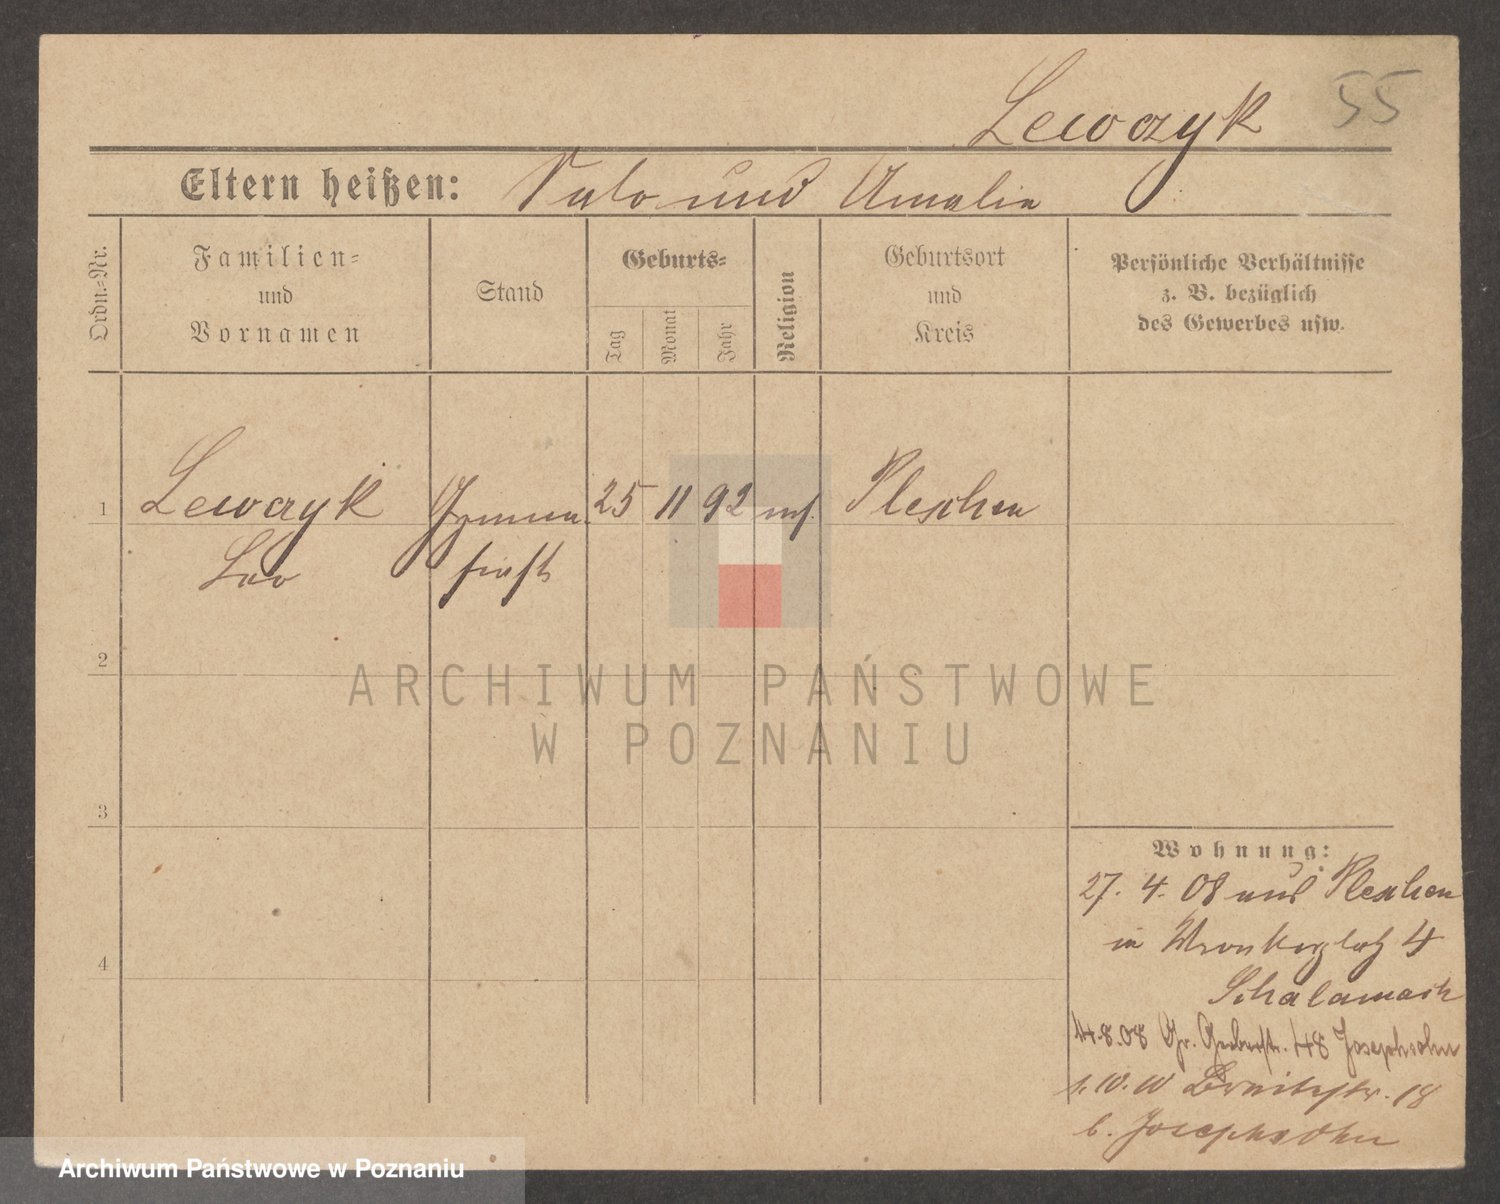 Lewczyk 55
Eltern heißen: Salo und Amalie
Ordn.-Nr.
Familien-
und
Vornamen
Stand
Geburts-
Tag
Monat
Jahr
Religion
Geburtsort
und
Kreis
Persönliche Verhältnisse
z. B. bezüglich
des Gewerbes usw.
1 Lewczyk Gymna 25 11 92 mos. Pleschen
Leo siast
2
3
4
ARCHIWUM PAŃSTWOWE
W POZNANIU
Wohnung:
27. 4. 08 aus Pleschen
in Wronkerplatz 4
Schalamach
4.8.08 Gr. Gerberstr. 48 Josephsohn
1.10.10 Breitestr. 18
b. Josephsohn
Archiwum Państwowe w Poznaniu